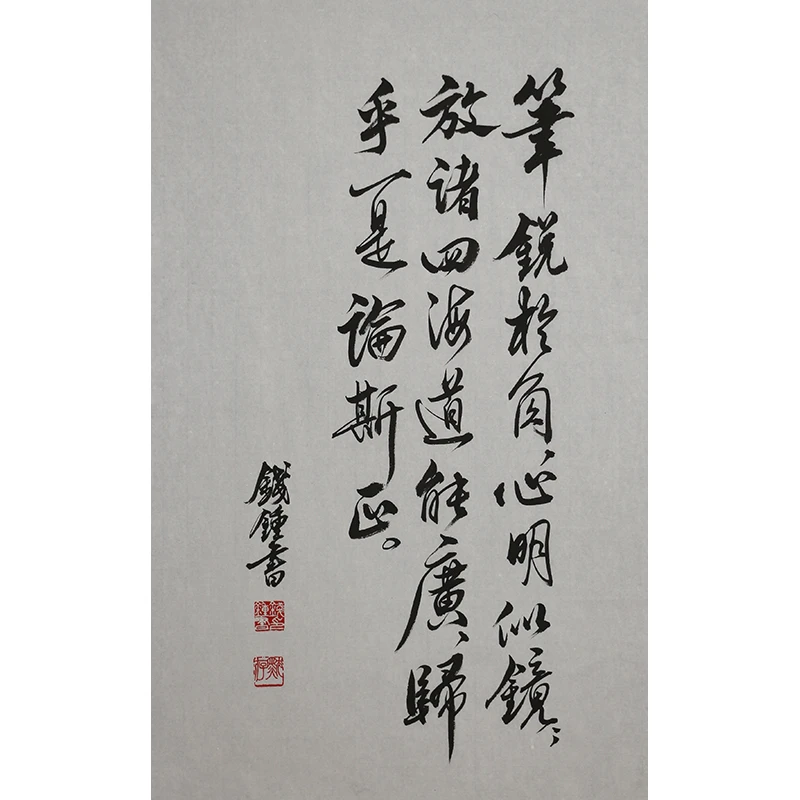 筆銳於角、心明似鏡；
放諸四海道能廣、歸
乎一是論斯正。
錢鍾書
默存